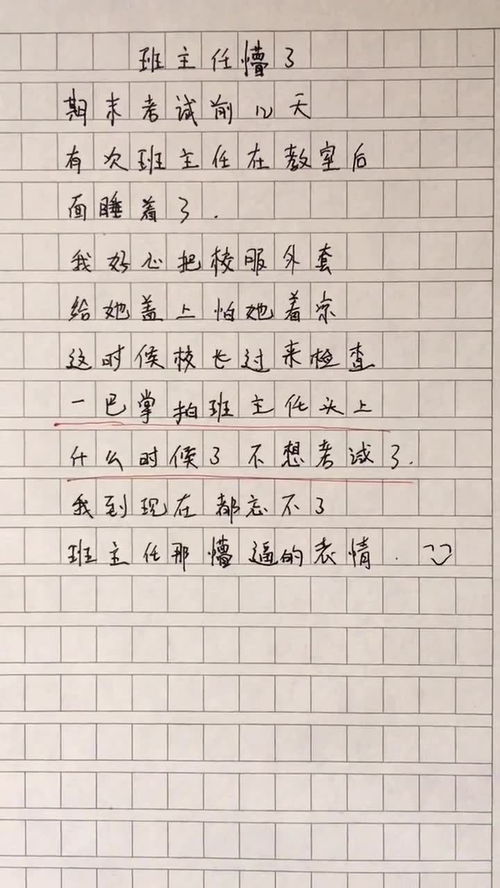 班主任懵了
期末考试前12天
有次班主任在教室后
面睡着了.
我好心把校服外套
给她盖上怕她着凉
这时候校长过来检查
一巴掌拍班主任头上
什么时候了不想考试了.
我到现在都忘不了
班主任那懵逼的表情.